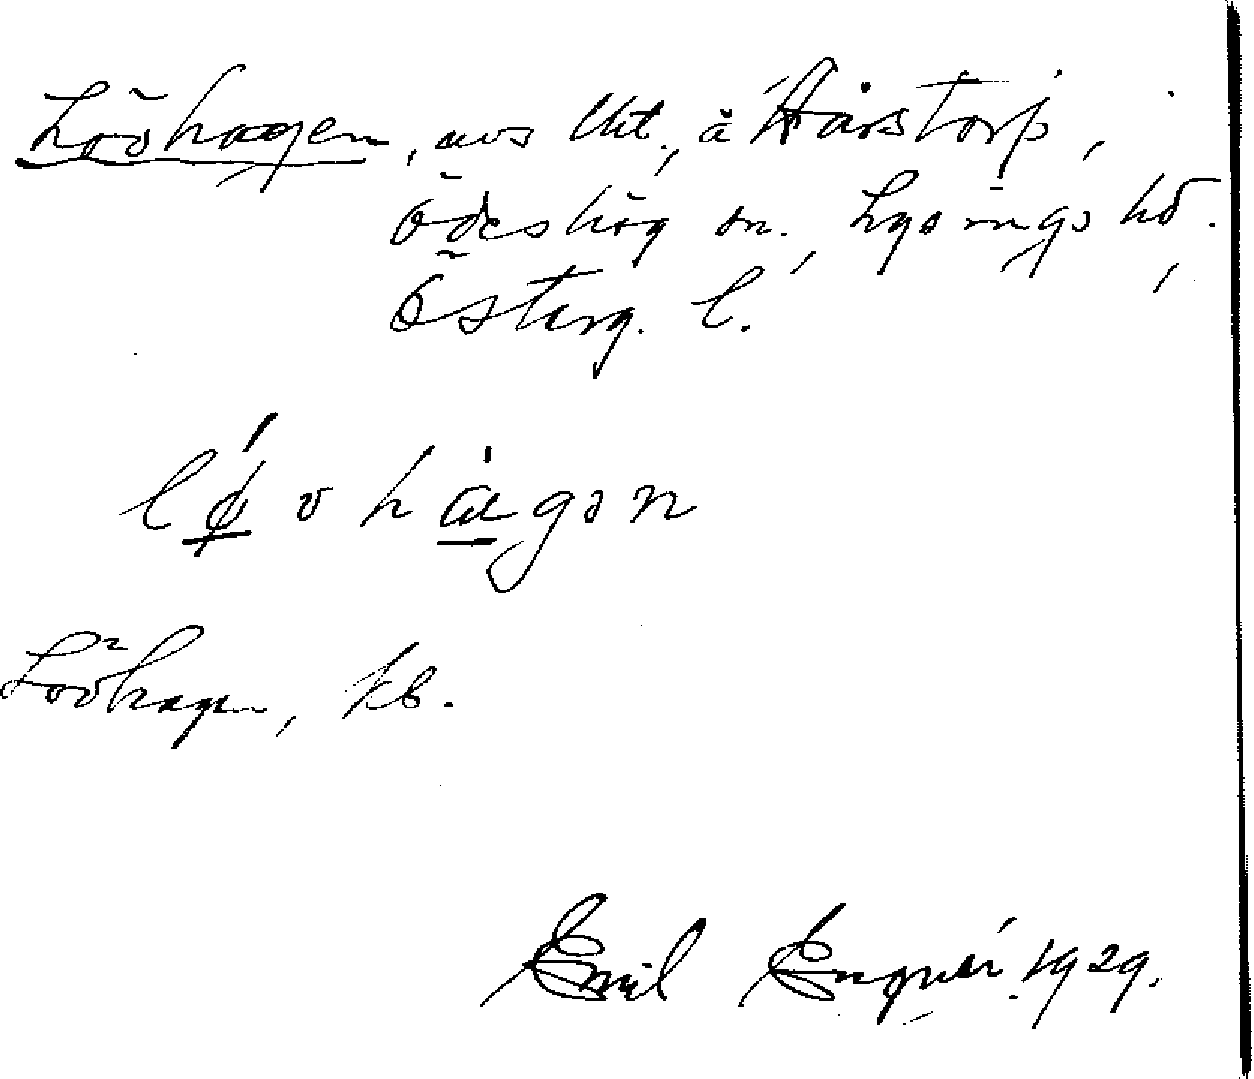 Lövhagen, avs lht., å Hårstorp,
Ödeshög sn., Lysings hd.,
Österg. l.
lǿ̲vhɑ̲̀gən
Lövhagen, kb.
Emil Enqvist 1929.